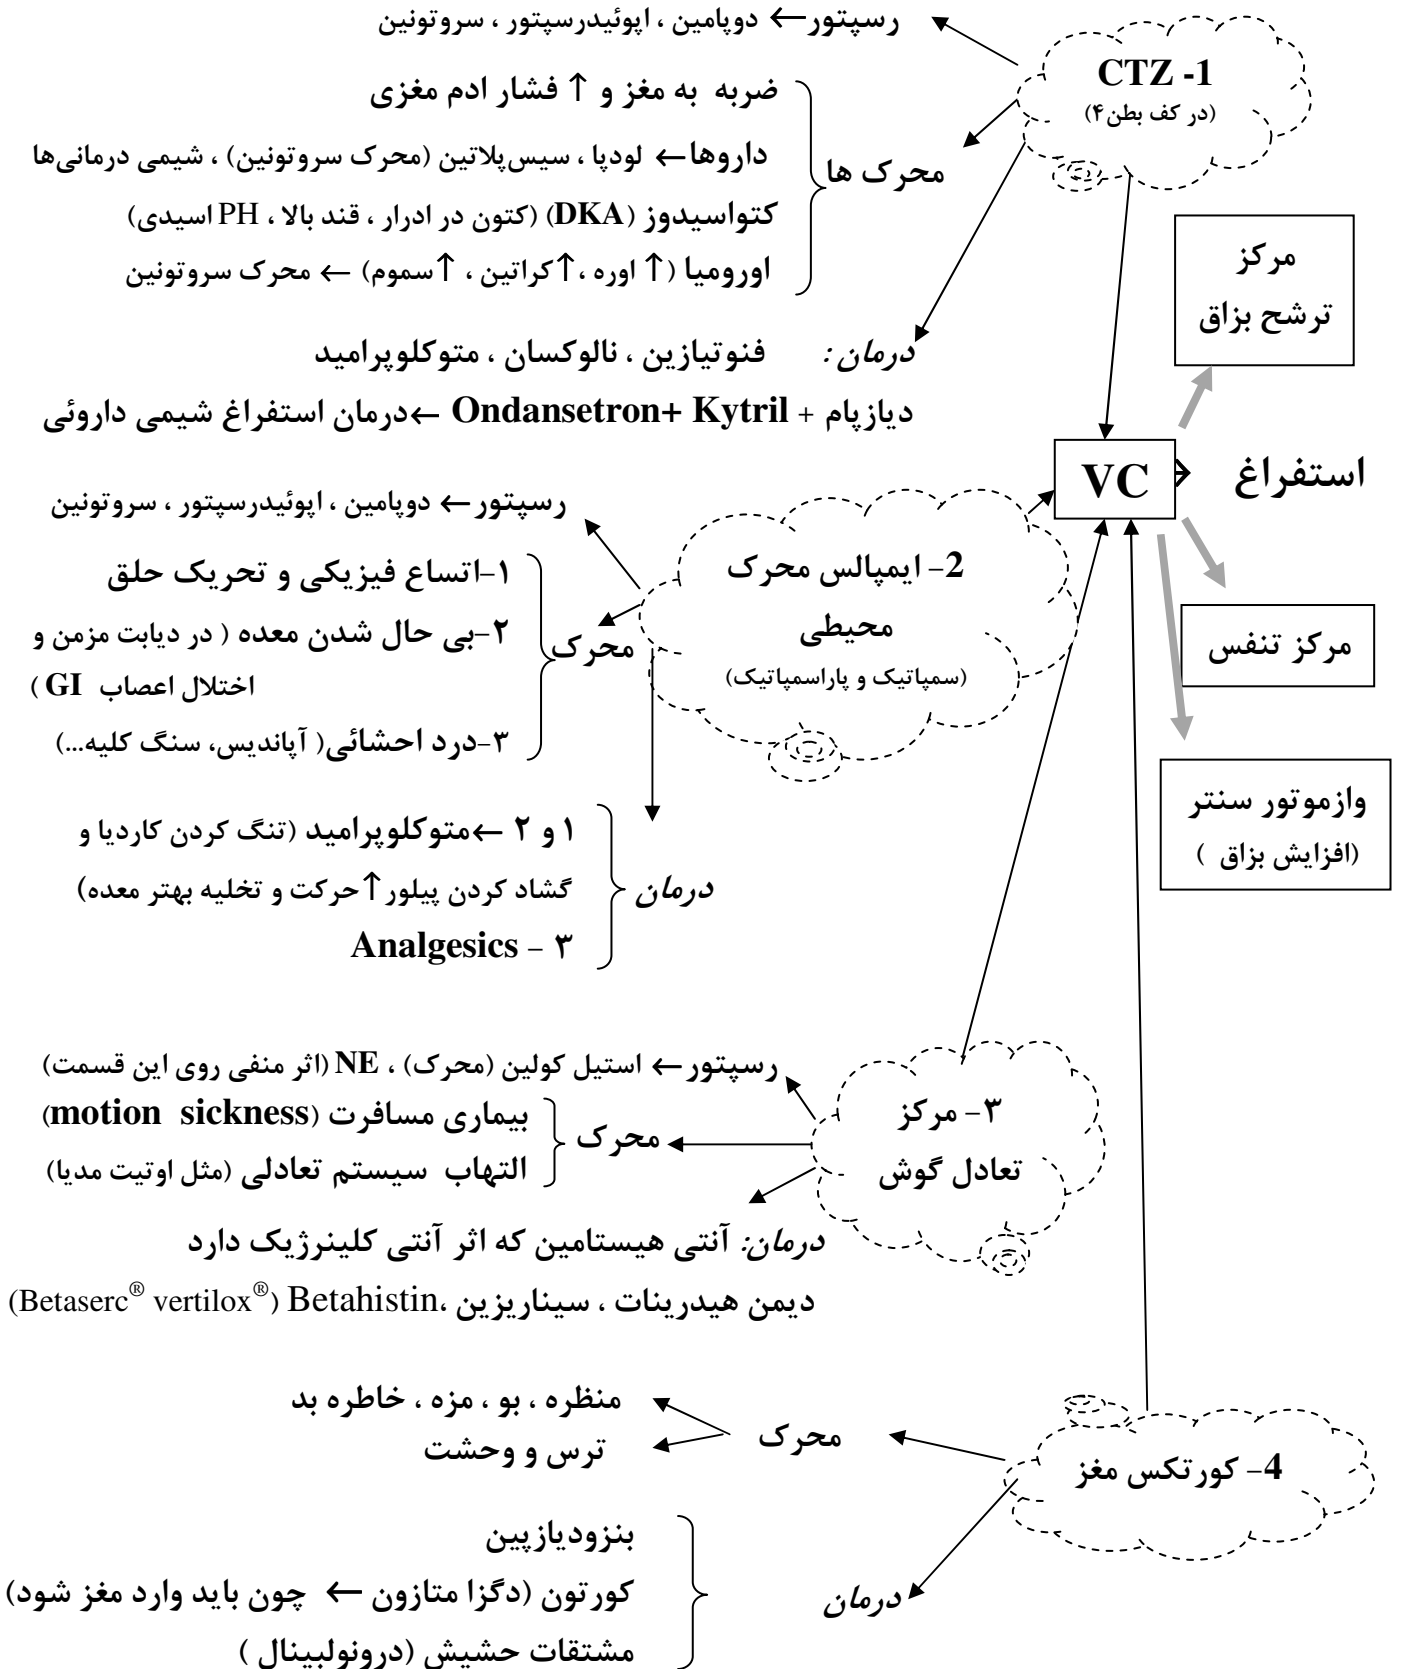 رسپتور← دوپامین ، اپوئیدرسپتور ، سروتونین
CTZ -1
(در کف بطن۴)
محرک ها
ضربه به مغز و ↑ فشار ادم مغزی
داروها← لودپا ، سیس‌پلاتین (محرک سروتونین) ، شیمی درمانی‌ها
کتواسیدوز (DKA) (کتون در ادرار ، قند بالا ، PH اسیدی)
اورومیا (↑ اوره ،↑کراتین ، ↑سموم) ← محرک سروتونین
درمان : فنوتیازین ، نالوکسان ، متوکلوپرامید
دیازپام + Ondansetron+ Kytril ←درمان استفراغ شیمی داروئی
مرکز
ترشح بزاق
VC
استفراغ
مرکز تنفس
وازموتور سنتر
(افزایش بزاق )
2- ایمپالس محرک
محیطی
(سمپاتیک و پاراسمپاتیک)
رسپتور← دوپامین ، اپوئیدرسپتور ، سروتونین
محرک
۱-اتساع فیزیکی و تحریک حلق
۲-بی حال شدن معده ( در دیابت مزمن و
اختلال اعصاب GI )
۳-درد احشائی( آپاندیس، سنگ کلیه...)
درمان
۱ و ۲ ←متوکلوپرامید (تنگ کردن کاردیا و
گشاد کردن پیلور↑حرکت و تخلیه بهتر معده)
۳ - Analgesics
۳- مرکز
تعادل گوش
رسپتور← استیل کولین (محرک) ، NE (اثر منفی روی این قسمت)
محرک
بیماری مسافرت (motion sickness)
التهاب سیستم تعادلی (مثل اوتیت مدیا)
درمان: آنتی هیستامین که اثر آنتی کلینرژیک دارد
دیمن هیدرینات ، سیناریزین ،Betahistin (Betaserc® vertilox®)
4- کورتکس مغز
محرک
منظره ، بو ، مزه ، خاطره بد
ترس و وحشت
درمان
بنزودیازپین
کورتون (دگزا متازون ← چون باید وارد مغز شود)
مشتقات حشیش (درونولبینال )